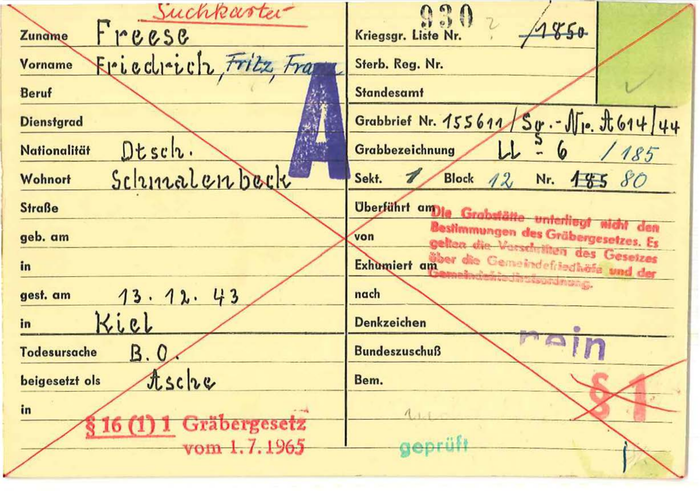 Suchkarte
Zuname Freese
Vorname Friedrich, Fritz, Franz
Beruf
Dienstgrad
Nationalität Dtsch.
Wohnort Schmalenbeck
Straße
geb. am
in
gest. am 13. 12. 43
in Kiel
Todesursache B.O.
beigesetzt als Asche
in
§ 16 (1) 1 Gräbergesetz
vom 1.7.1965
A
930 ?
Kriegsgr. Liste Nr. 1850
Sterb. Reg. Nr.
Standesamt
Grabbrief Nr. 155611/Sg.-Nr. A614/44
Grabbezeichnung LL 5-6 /185
Sekt. 1 Block 12 Nr. 185 80
Überführt am
von
Exhumiert am
nach
Die Grabstätte unterliegt nicht den
Bestimmungen des Gräbergesetzes. Es
gelten die Vorschriften des Gesetzes
über die Gemeindefriedhöfe und der
Gemeindefriedhofsordnung.
Denkzeichen
Bundeszuschuß nein
Bem.
§ 1
geprüft